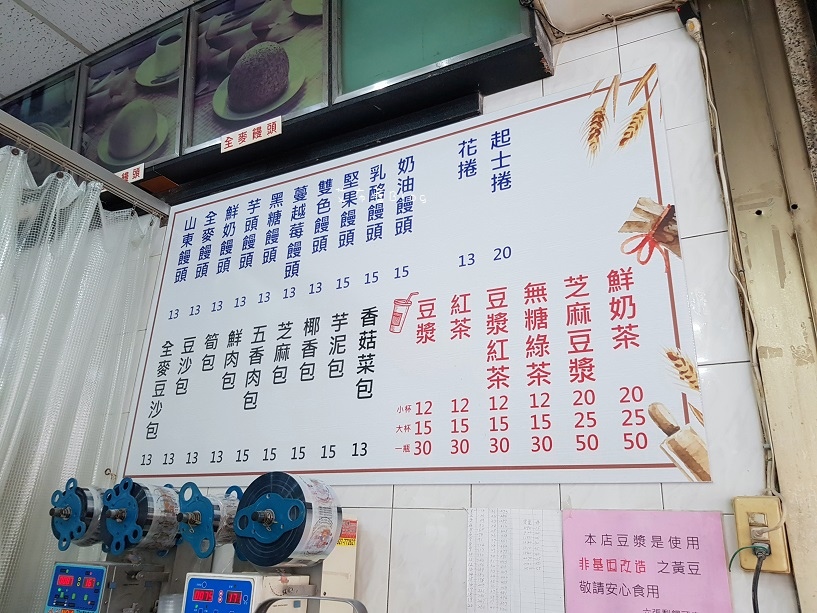 全麥饅頭
饅頭
山東饅頭 13
全麥饅頭 13
鮮奶饅頭 13
芋頭饅頭 13
黑糖饅頭 13
蔓越莓饅頭 13
雙色饅頭 13
堅果饅頭 15
乳酪饅頭 15
奶油饅頭 15
花捲 13
起士捲 20
全麥豆沙包 13
豆沙包 13
筍包 13
鮮肉包 13
五香肉包 15
芝麻包 15
椰香包 15
芋泥包 15
香菇菜包 13
豆漿
紅茶
豆漿紅茶
無糖綠茶
芝麻豆漿
鮮奶茶
小杯 12 12 12 12 20 20
大杯 15 15 15 15 25 25
一瓶 30 30 30 30 50 50
本店豆漿是使用
非基因改造 之黃豆
敬請安心食用